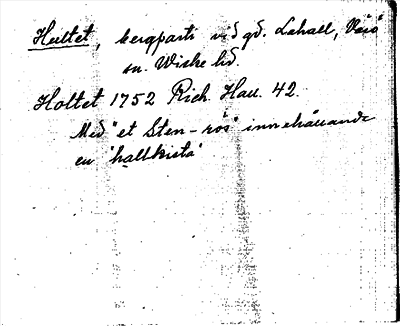 Hultet, bergparti vid gd. Lahall, Värö
sn. Wiske hd.
Holtet 1752 Rich. Hall. 42.
Med "et Sten-rös" innehållande
en "hallkista"